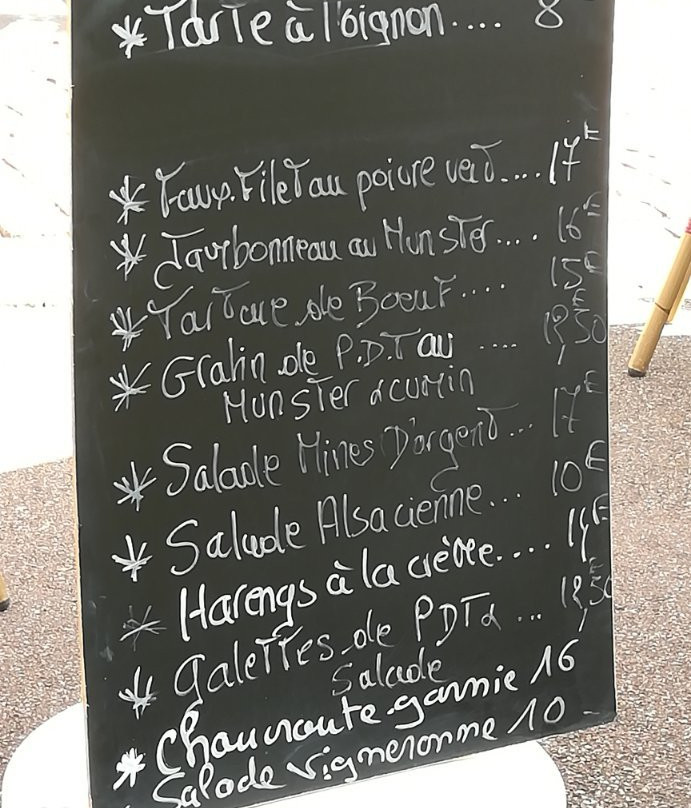 * Tarte à l'oignon.... 8
* Faux.Filet au poivre vert.... 17€
* Jambonneau au Munster.... 16€
* Tartare de Boeuf.... 15€
* Gratin de P.D.T au .... 12,50€
Munster & cumin
* Salade Mines D'argent... 17€
* Salade Alsacienne... 10€
* Harengs à la crème.... 14€
* Galettes de PDT & ... 12,50€
Salade
* Choucroute garnie 16
* Salade vigneronne 10 -